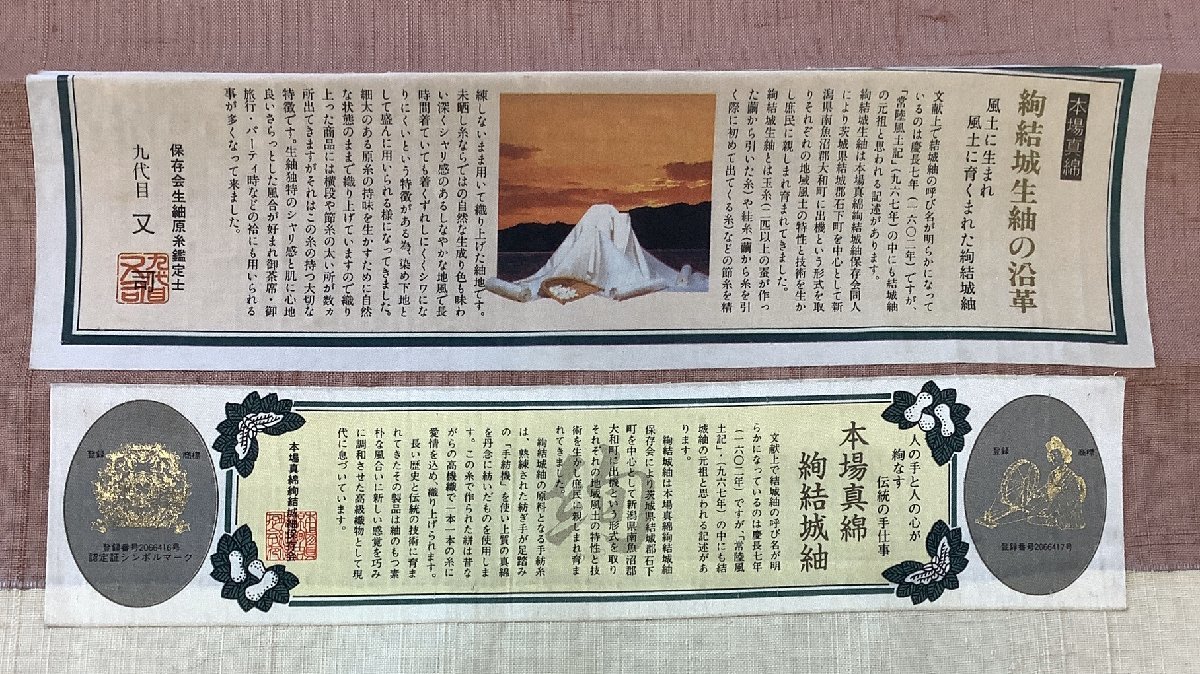 本場真綿
絢結城生紬の沿革
風土に生まれ
風土に育くまれた絢結城紬
文献上で結城紬の呼び名が明らかになって
いるのは慶長七年(一六〇二年)ですが、
「常陸風土記」(九六七年)の中にも結城紬
の元祖と思われる記述があります。
絢結城生紬は本場真綿絢結城紬保存会同人
により茨城県結城郡石下町を中心として新
潟県南魚沼郡大和町に出機という形式を取
りそれぞれの地域風土の特性と技術を生か
し庶民に親しまれ育まれてきました。
絢結城生紬とは玉糸(二匹以上の蚕が作っ
た繭から引いた糸)や絓糸(繭から糸を引
く際に初めて出てくる糸)などの節糸を精
練しないまま用いて織り上げた紬地です。
未晒し糸ならではの自然な生成り色も味わ
い深くシャリ感のあるしなやかな地風で長
時間着ていても着くずれしにくくシワにな
りにくいという特徴がある為、染め下地と
して盛んに用いられる様になってきました。
細太のある原糸の持味を生かすために自然
な状態のままで織り上げていますので織り
上った商品には横段や節糸の太い所が数ヵ
所出てきますがそれはこの糸の持つ大切な
特徴です。生紬独特のシャリ感と肌に心地
良いさらっとした風合が好まれ御茶席・御
旅行・パーティ時などの袷にも用いられる
事が多くなって来ました。
保存会生紬原糸鑑定士
九代目 又一
人の手と人の心が
絢なす
伝統の手仕事
本場真綿
絢結城紬
文献上で結城紬の呼び名が明
らかになっているのは慶長七年
(一六〇二年)ですが「常陸風
土記」(九六七年)の中にも結
城紬の元祖と思われる記述があ
ります。
絢結城紬は本場真綿絢結城紬
保存会により茨城県結城郡石下
町を中心として新潟県南魚沼郡
大和町に出機という形式を取り
それぞれの地域風土の特性と技
術を生かし庶民に親しまれ育ま
れてきました。
絢結城紬の原料となる手紡糸
は、熟練された紡ぎ手が足踏み
の「手紡機」を使い上質の真綿
を丹念に紡いだものを使用しま
す。この糸で作られた絣は昔な
がらの高機で一本一本の糸に
愛情を込め、織り上げられます。
長い歴史と伝統の技術に育ま
れてきたその製品は紬のもつ素
朴な風合いに新しい感覚を巧み
に調和させた高級織物として現
代に息づいています。
本場真綿絢結城紬保存会
絢
登録 商標
登録番号2066417号
登録 商標
登録番号2066416号
認定証シンボルマーク